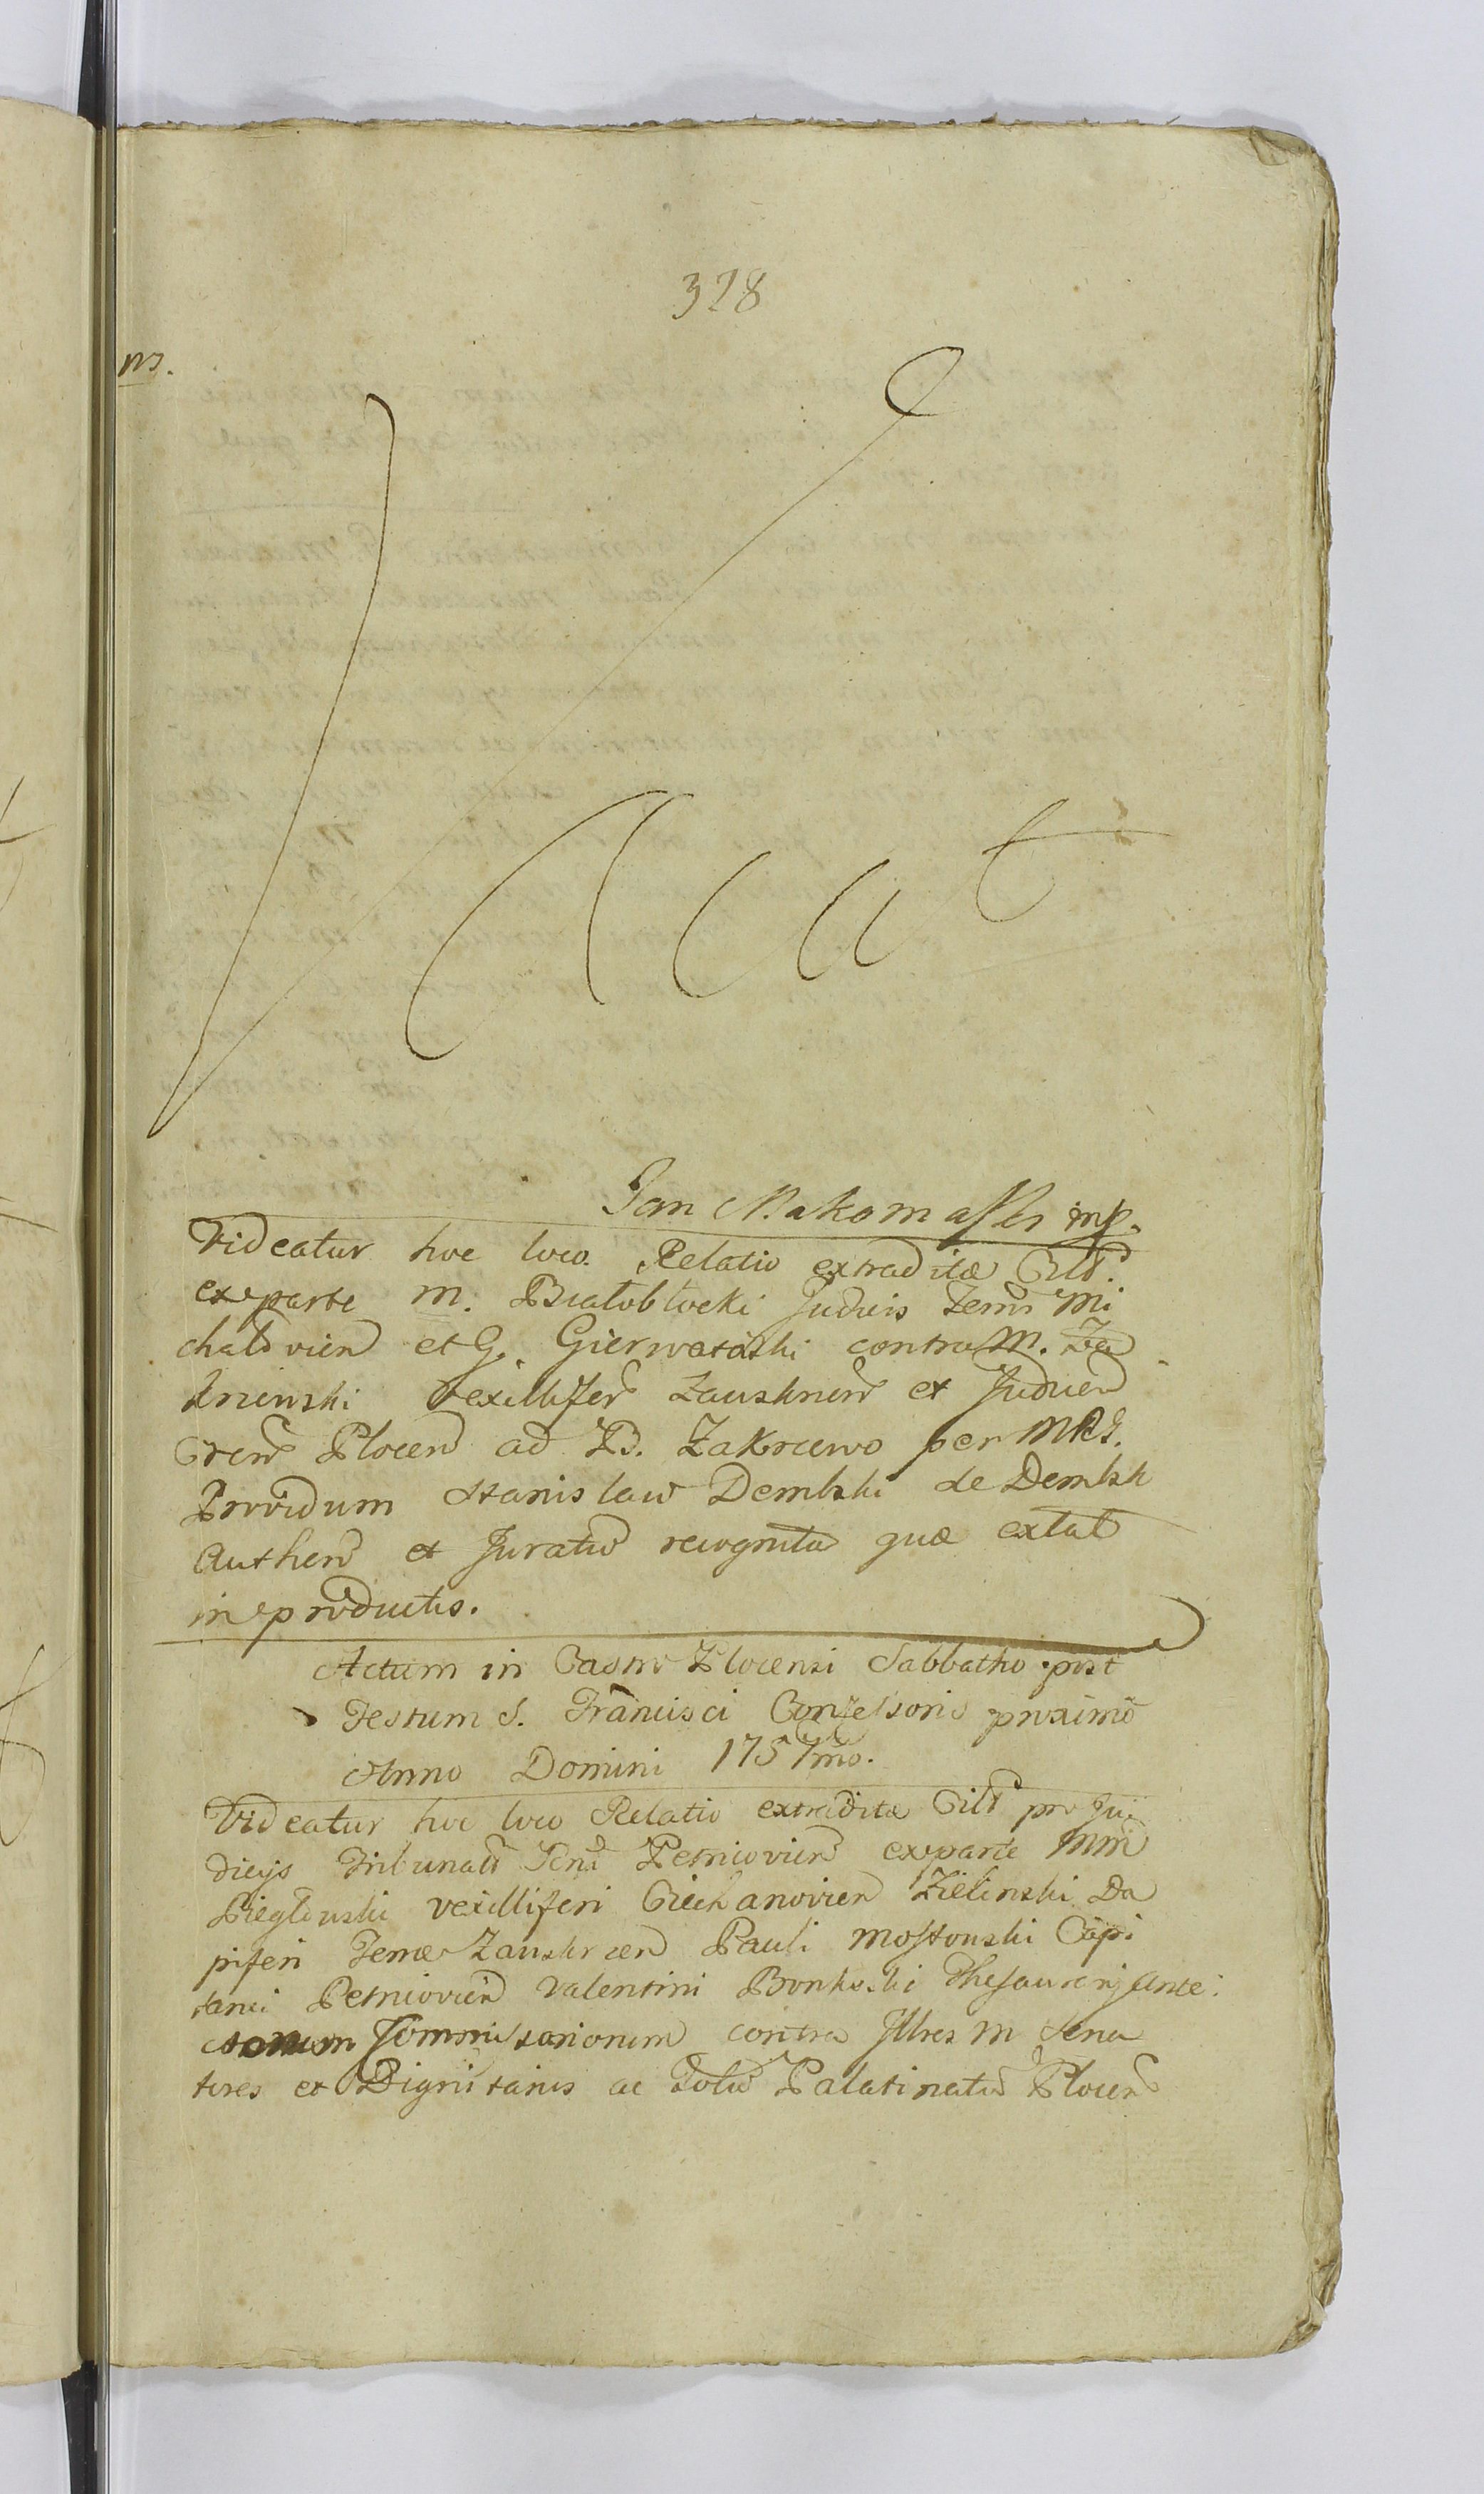 328
Vacat
Jan Makomaski mp.
Videatur hoc loco Relatio extraditæ Citt.
exparte M. Białobłocki Judicis Terrs Mi
chalovien et G. Gierwatoski contra M.
Vexilliferr Zauskrnen et Judicen
Plocen ad B. Zakrzewo per MRS.
Providum Stanislaw Dembski de Dembsk
Authen et Juratu recognita quæ extat
in productis.
Actum in Castro Plocensi Sabbatho post
Festum S. Francisci Confessoris proximo
Anno Domini 1757mo.
Videatur hoc loco Relatio extraditæ Citt pro Jui
dicijs Tribunalt Petricovien exparte Mm
Pieglowski vexilliferi Ciechanovien Zielinski Da
piferi Terræ Zauskrzen Pauli Mostowski Capi
tanei Petricovien Valentini Bonkoski Thesaurarij
Commissariorum contra Illres M Sena
tores et Dignitarios ac Totu Palatinatu Plocen